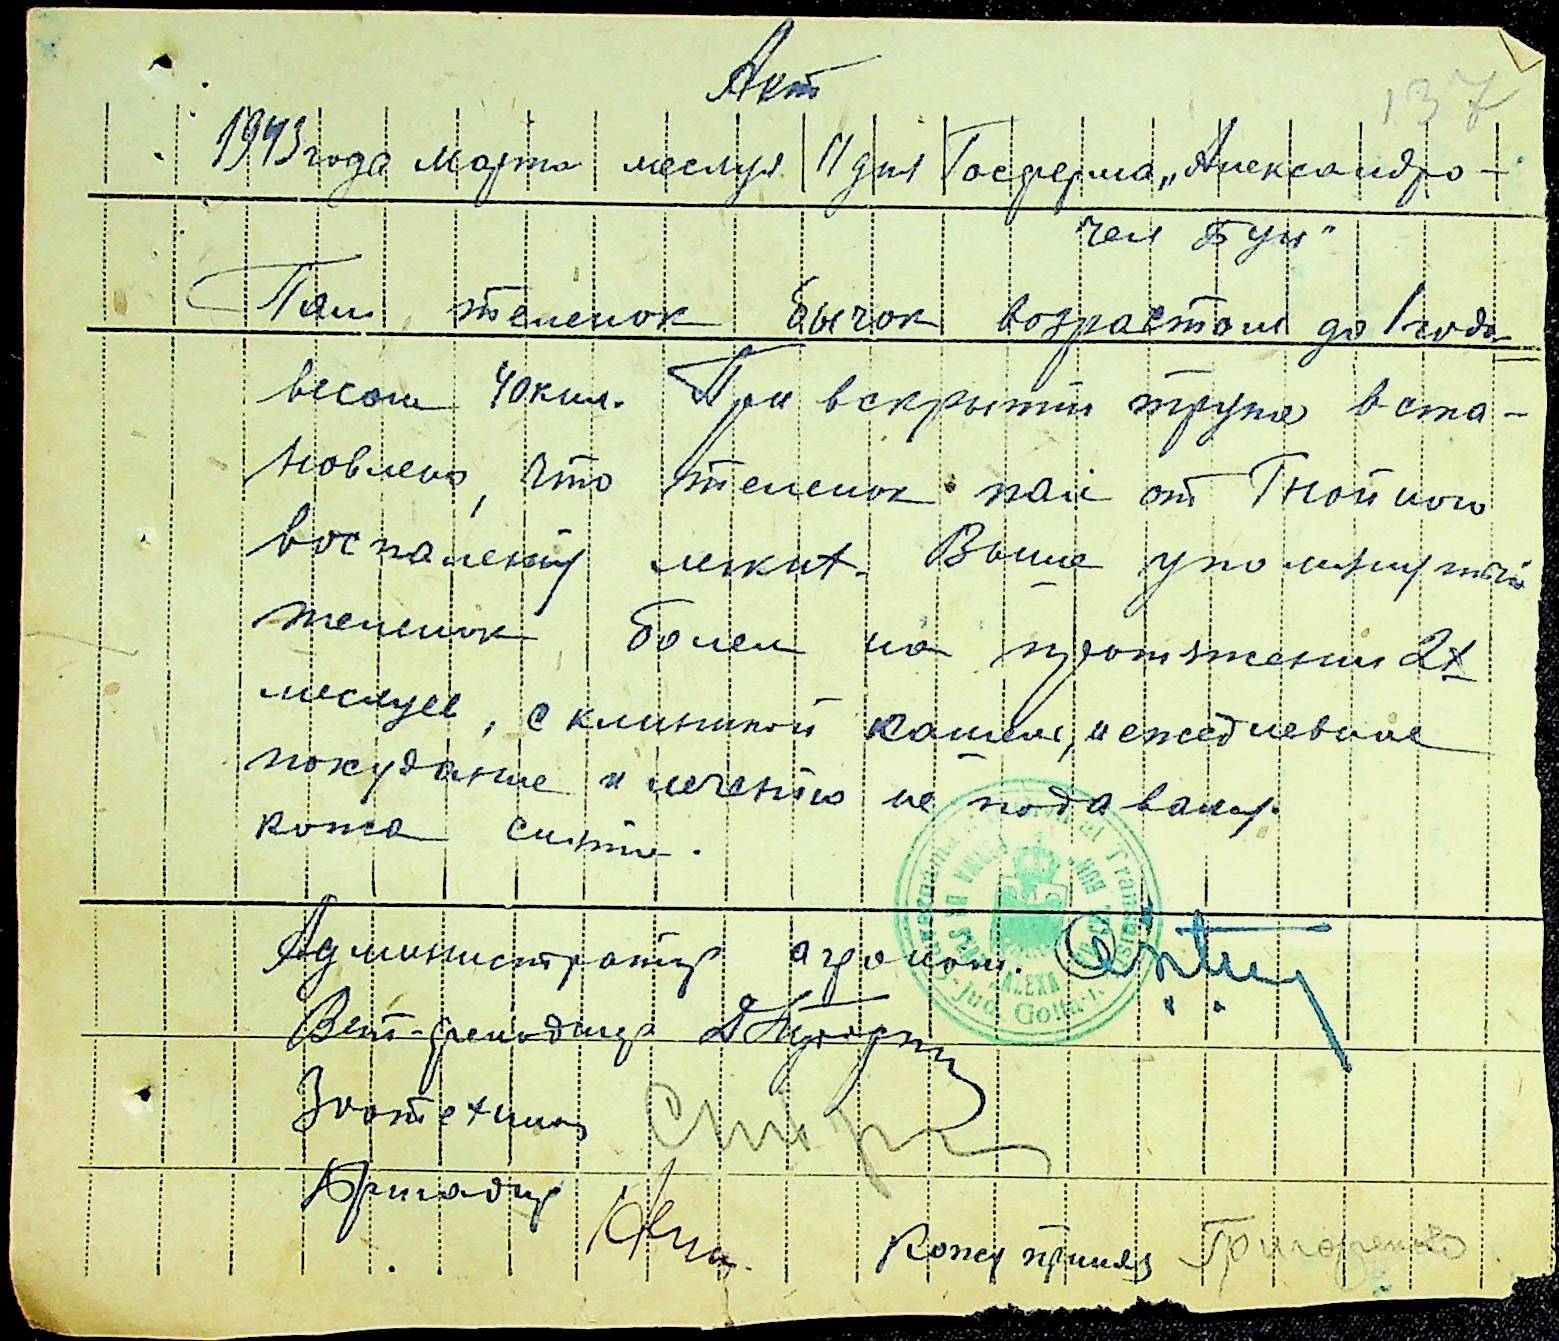 137
Акт
1943 года марта месяця 11 дня Госферма „Александро-
чел Бун"
Пал теленок бычок возрастом до 1 года
весом 40 кил. При вскрытии трупа вста-
новлено, что теленок пал от Гнойного
воспаления легких. Выше упомянутый
теленок болел на протяжении 2х
месяцев, с клиникой кашель, и ежедневное
похудание и лечению не подавался.
кожа снята.
Администратор агроном.
Вет-фельдшер
Зоотехник
Бригадир
Кожу принял Григоренко